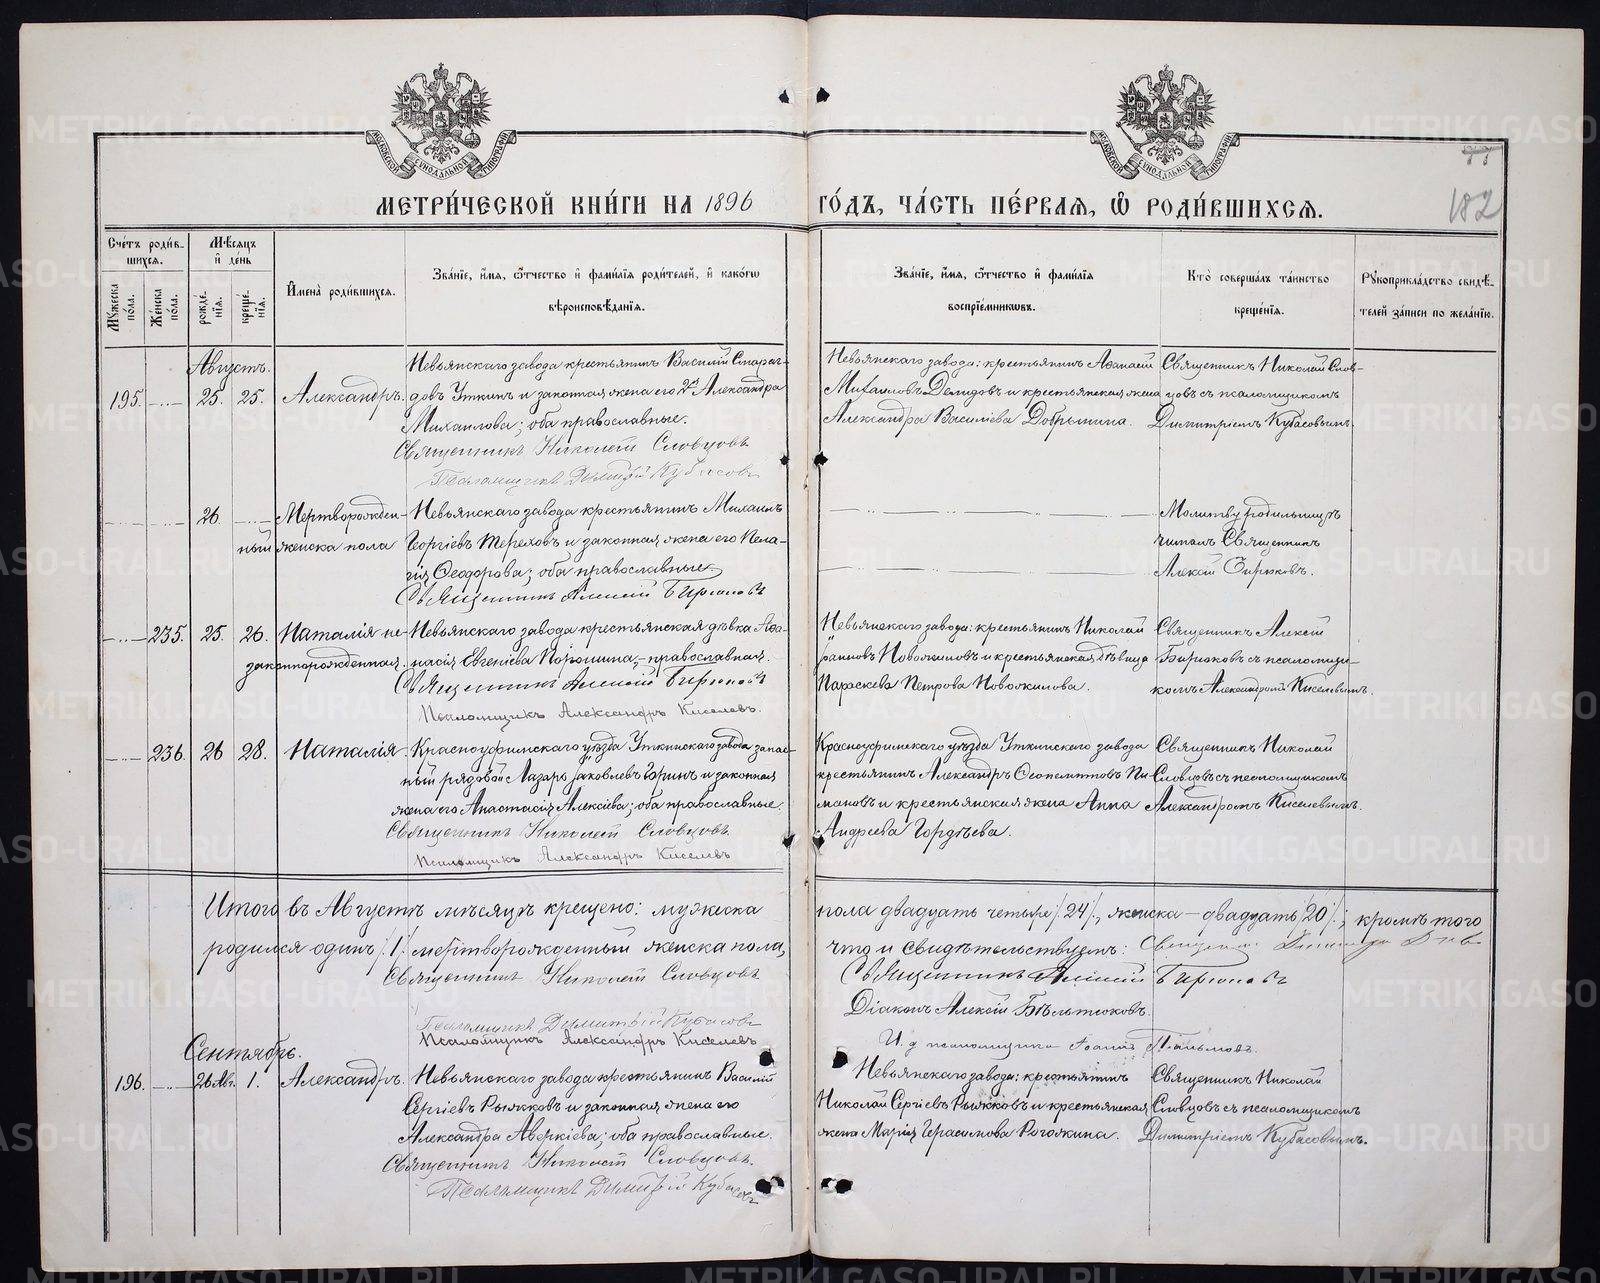 МЕТРИ́ЧЕСКОЙ КНИ́ГИ НА 1896 ГО́ДЪ, ЧА́СТЬ ПЕ́РВАЯ, Ѡ РОДИ́ВШИХСЯ.
182
Сче́тъ роди́в-
шихся.
Му́жеска по́ла.
Же́нска по́ла.
Мѣ́сяцъ и҆ де́нь
рожде́-нїя.
креще́-нїя.
И҆мена̀ роди́вшихся.
Зва́нїе, и҆́мя, ѻ҆́тчество и҆ фами́лїя роди́телей, и҆ како́гѡ
вѣроисповѣ́данїя.
Зва́нїе, и҆́мя, ѻ҆́тчество и҆ фами́лїя
воспрїе́мникѡвъ.
Кто̀ соверша́лъ та́инство
креще́нїя.
Рꙋкоприкла́дство свидѣ́-
телей за́писи по жела́нїю.
Августъ.
195. 25. 25. Александръ.
Невьянскаго завода крестьянинъ Василій
довъ Уткинъ и законная жена его Александра
Михаилова; оба православные.
Священникъ Николай Словцовъ
Псаломщикъ Димитрій Кубасовъ
Невьянскаго завода: крестьянинъ Аѳанасій
Михаиловъ Демидовъ и крестьянская жена
Александра Васильева Добрынина.
Священникъ Николай Слов-
цовъ съ псаломщикомъ
Димитріемъ Кубасовымъ.
26. Мертворожден-
ный женска пола
Невьянскаго завода крестьянинъ Михаилъ
Георгіевъ Тереховъ и законная жена его Пела-
гія Ѳеодорова; оба православные.
Священникъ Алексій Бирюковъ
Молитву родильницѣ
читалъ Священникъ
Алексій Бирюковъ.
235. 25. 26. Наталія не-
законнорожденная.
Невьянскаго завода крестьянская дѣвка Аѳа-
насія Евгеніева Порошина, православная.
Священникъ Алексій Бирюковъ
Псаломщикъ Александръ Киселевъ.
Невьянскаго завода: крестьянинъ Николай
Іоанновъ Новожиловъ и крестьянская дѣвица
Параскева Петрова Новожилова.
Священникъ Алексій
Бирюковъ съ псаломщи-
комъ Александромъ Киселевымъ.
236. 26 28. Наталія
Красноуфимскаго уѣзда Уткинскаго завода запас-
ный рядовой Лазарь Іаковлевъ Горинъ и законная
жена его Анастасія Алексіева; оба православные.
Священникъ Николай Словцовъ
Псаломщикъ Александръ Киселевъ
Красноуфимскаго уѣзда Уткинскаго завода
крестьянинъ Александръ Ѳеопемптовъ Пи-
мановъ и крестьянская жена Анна
Андреева Гордѣева.
Священникъ Николай
Словцовъ съ псаломщикомъ
Александромъ Киселевымъ.
Итого въ Августѣ мѣсяцѣ крещено: мужеска пола двадцать четыре /24/, женска – двадцать /20/; кромѣ того
родился одинъ /1/ мертворожденный женска пола, что и свидѣтельствуемъ:
Священникъ Николай Словцовъ
Священникъ Алексій Бирюковъ
Діаконъ Алексій Бѣльтюковъ.
Псаломщикъ Димитрій Кубасовъ
Псаломщикъ Александръ Киселевъ
И. д псаломщика Іоаннъ
Сентябрь.
196. 26 Авг. 1. Александръ.
Невьянскаго завода крестьянинъ Василій
Сергіевъ Рыжковъ и законная жена его
Александра Аверкіева; оба православные.
Священникъ Николай Словцовъ.
Псаломщикъ Димитрій Кубасовъ
Невьянскаго завода: крестьянинъ
Николай Сергіевъ Рыжковъ и крестьянская
жена Марія Герасимова Рогожкина.
Священникъ Николай
Словцовъ съ псаломщикомъ
Димитріемъ Кубасовымъ.
METRIKI.GASO-URAL.RU